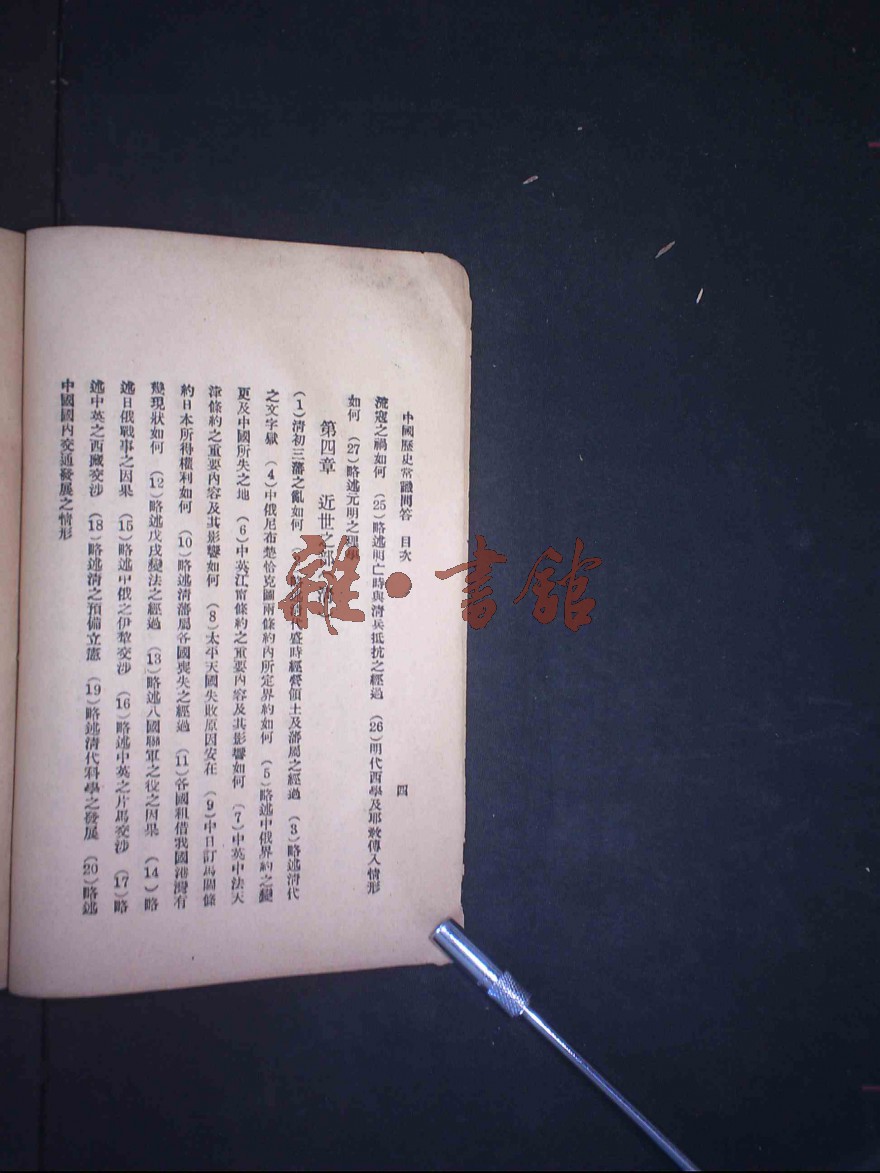 中國歷史常識問答　目次　四
流寇之禍如何　(25)略述明亡時與清兵抵抗之經過　(26)明代西學及耶敎傳入情形
如何　(27)略述元明之
第四章　近世之部
(1)清初三藩之亂如何　盛時經營領土及藩屬之經過　(3)略述清代
之文字獄　(4)中俄尼布楚恰克圖兩條約內所定界約如何　(5)略述中俄界約之變
更及中國所失之地　(6)中英江甯條約之重要內容及其影響如何　(7)中英中法天
津條約之重要內容及其影響如何　(8)太平天國失敗原因安在　(9)中日訂馬關條
約日本所得權利如何　(10)略述清藩屬各國喪失之經過　(11)各國租借我國港灣有
幾現狀如何　(12)略述戊戌變法之經過　(13)略述八國聯軍之役之因果　(14)略
述日俄戰事之因果　(15)略述中俄之伊犂交涉　(16)略述中英之片馬交涉　(17)略
述中英之西藏交涉　(18)略述清之預備立憲　(19)略述清代科學之發展　(20)略述
中國國內交通發展之情形
雜·書館